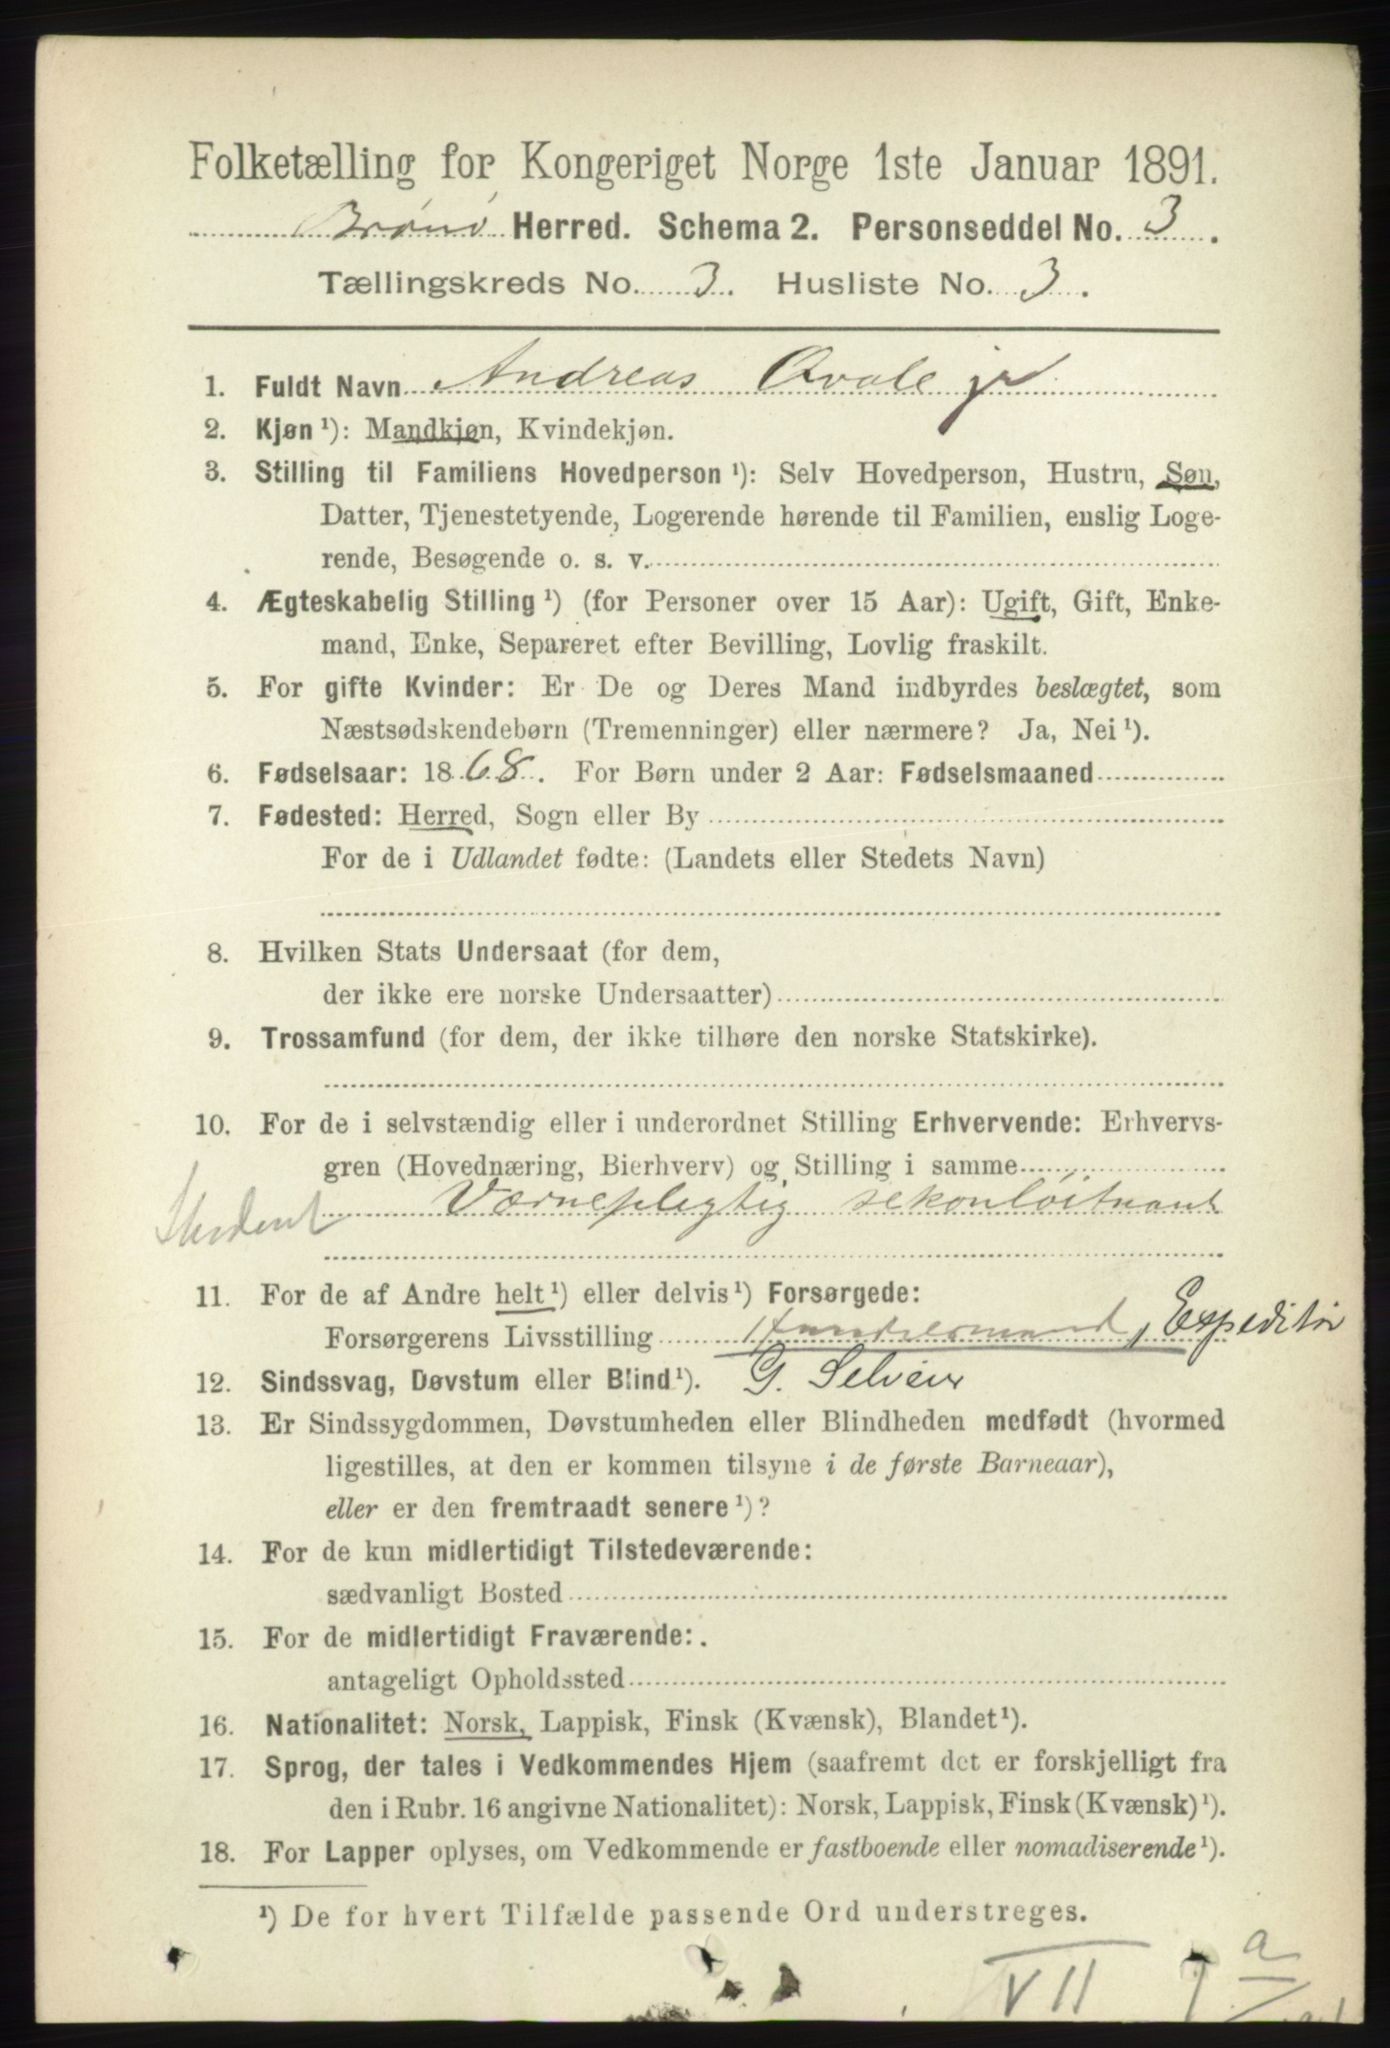 Folketælling for Kongeriget Norge 1ste Januar 1891.
Brønø Herred. Schema 2. Personseddel No. 3.
Tællingskreds No. 3. Husliste No. 3.
1. Fuldt Navn Andreas Qvale jr
2. Kjøn ¹): Mandkjøn, Kvindekjøn.
3. Stilling til Familiens Hovedperson ¹): Selv Hovedperson, Hustru, Søn,
Datter, Tjenestetyende, Logerende hørende til Familien, enslig Loge-
rende, Besøgende o. s. v.
4. Ægteskabelig Stilling ¹) (for Personer over 15 Aar): Ugift, Gift, Enke-
mand, Enke, Separeret efter Bevilling, Lovlig fraskilt.
5. For gifte Kvinder: Er De og Deres Mand indbyrdes beslægtet, som
Næstsødskendebørn (Tremenninger) eller nærmere? Ja, Nei ¹).
6. Fødselsaar: 1868. For Børn under 2 Aar: Fødselsmaaned
7. Fødested: Herred, Sogn eller By
For de i Udlandet fødte: (Landets eller Stedets Navn)
8. Hvilken Stats Undersaat (for dem,
der ikke ere norske Undersaatter)
9. Trossamfund (for dem, der ikke tilhøre den norske Statskirke).
10. For de i selvstændig eller i underordnet Stilling Erhvervende: Erhvervs-
gren (Hovednæring, Bierhverv) og Stilling i samme
Student Værnepligtig sekonløitnant
11. For de af Andre helt ¹) eller delvis ¹) Forsørgede:
Forsørgerens Livsstilling Handelsmand, Expeditør
12. Sindssvag, Døvstum eller Blind ¹). G. Selveier
13. Er Sindssygdommen, Døvstumheden eller Blindheden medfødt (hvormed
ligestilles, at den er kommen tilsyne i de første Barneaar),
eller er den fremtraadt senere ¹)?
14. For de kun midlertidigt Tilstedeværende:
sædvanligt Bosted
15. For de midlertidigt Fraværende:
antageligt Opholdssted
16. Nationalitet: Norsk, Lappisk, Finsk (Kvænsk), Blandet ¹).
17. Sprog, der tales i Vedkommendes Hjem (saafremt det er forskjelligt fra
den i Rubr. 16 angivne Nationalitet): Norsk, Lappisk, Finsk (Kvænsk) ¹).
18. For Lapper oplyses, om Vedkommende er fastboende eller nomadiserende ¹).
¹) De for hvert Tilfælde passende Ord understreges.
VII 7 a